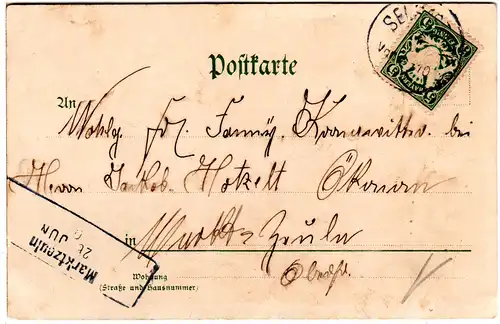 SE
Postkarte
An
Wohlg. Frl. Fanny Kranawitter bei
Herrn Jakob Hotzelt Ökonom
in Marktzeuln
Oberfr.
Wohnung
(Straße und Hausnummer)
Marktzeuln
26 JUN